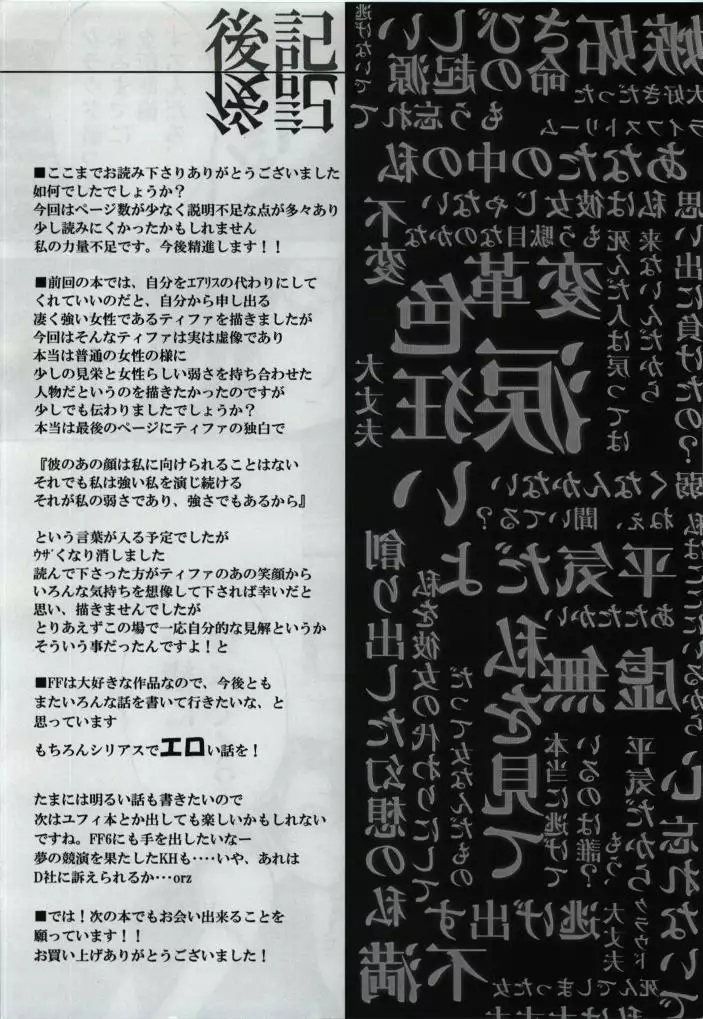 後記
■ここまでお読み下さりありがとうございました
如何でしたでしょうか?
今回はページ数が少なく説明不足な点が多々あり
少し読みにくかったかもしれません
私の力量不足です。今後精進します!!
■前回の本では、自分をエアリスの代わりにして
くれていいのだと、自分から申し出る
凄く強い女性であるティファを描きましたが
今回はそんなティファは実は虚像であり
本当は普通の女性の様に
少しの見栄と女性らしい弱さを持ち合わせた
人物だというのを描きたかったのですが
少しでも伝わりましたでしょうか?
本当は最後のページにティファの独白で
『彼のあの顔は私に向けられることはない
それでも私は強い私を演じ続ける
それが私の弱さであり、強さでもあるから』
という言葉が入る予定でしたが
ウザくなり消しました
読んで下さった方がティファのあの笑顔から
いろんな気持ちを想像して下されば幸いだと
思い、描きませんでしたが
とりあえずこの場で一応自分的な見解というか
そういう事だったんですよ!と
■FFは大好きな作品なので、今後とも
またいろんな話を書いて行きたいな、と
思っています
もちろんシリアスでエロい話を!
たまには明るい話も書きたいので
次はユフィ本とか出しても楽しいかもしれない
ですね。FF6にも手を出したいなー
夢の競演を果たしたKHも‥‥いや、あれは
D社に訴えられるか‥・orz
■では!次の本でもお会い出来ることを
願っています!!
お買い上げありがとうございました!
嫉妬
さびしい
命の起源
大好きだった
もう忘れて
逃げないで
ライフストリーム
あなたの中の私
私は彼女じゃない
もう駄目なのかな
不変
変革
色狂い
涙
大丈夫
思い出に負けたの?
来ないんだから
死んだ人は戻っては
弱くなんかない
ねぇ、聞いてる?
私はここにいるから
平気だよ
あたたかい
創り出した幻想の私
私を彼女の代わりにして
だって女なんだもの
私を見て
虚無
本当に逃げて
いるのは誰?
平気だから
もう、
大丈夫
クラウド
忘れないで
逃げ出す
不満
死んでしまった女